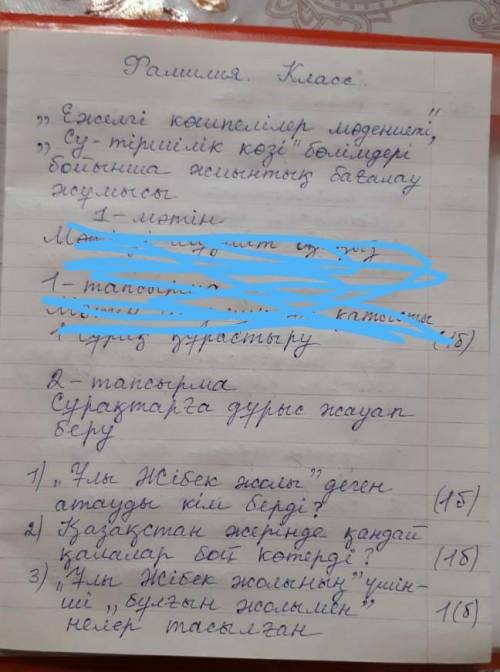 Фамилия. Класс.
„Ежелгі көшпелілер мәдениеті",
„Су-тіршілік көзі" бөлімдері
бойынша жиынтық бағалау
жұмысы
1-мәтін
1-тапсырма
қатысты
құрастыру (1б)
2-тапсырма
Сұрақтарға дұрыс жауап
беру
1) „Ұлы Жібек жолы" деген
атауды кім берді? (1б)
2) Қазақстан жерінде қандай
қалалар бой көтерді? (1б)
3) „Ұлы Жібек жолының" үшін-
ші „бұлғын жолымен" 1(б)
нелер тасылған